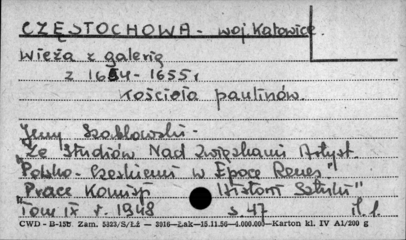 CZĘSTOCHOWA - woj. Katowice
Wieża z galerią
z 1654 - 1655 r
kościoła paulinów.
Jerzy Szablowski -
"Ze Studiów Nad Związkami Artyst.
Polsko-Czeskiemi w Epoce Renes"
"Prace Komisji Historii Sztuki"
Tom IX r. 1948 s. 47 il. 1.
CWD - B-156. Zam. 5323/S/Łż — 2016—Łak—15.11.56—4.000.000—Karton kl. IV A1/200 g